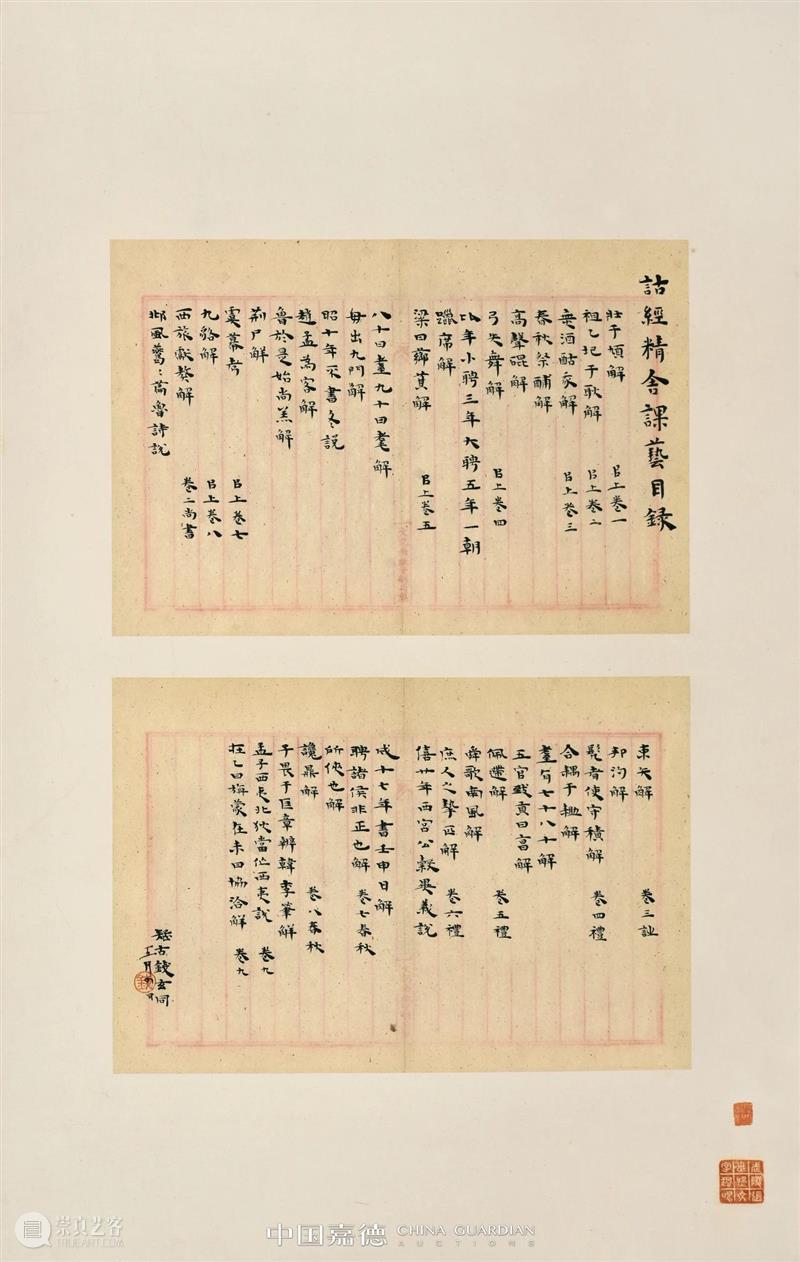 詁經精舍課藝目錄
壯于頄解 㠯上卷一
祖乙圮于耿解 㠯上卷二
無酒酤我解 㠯上卷三
春秋祭酺解
高聲䃂解
弓矢舞解 㠯上卷四
比年小聘三年大聘五年一朝
躐席解
梁曰薌萁解 㠯上卷五
八十曰耋九十曰耄解
毋出九門解
昭十年不書冬說
趙孟為客解
魯於是始尚羔解
荊尸解
虞幕考 㠯上卷七
九貉解 㠯上卷八
西旅獻獒解 卷二尚書
邶風 魯詩說
束矢解 卷三詩
邦汋解
髡者使守積解 卷四禮
合耦于耡解
耋有七十八十解
五官致貢曰享解
佩 解 卷五禮
舜歌南風解
庶人之摯匹解 卷六禮
僖廿年西宮公穀異義說
成十七年書壬申日解
聘諸侯非正也解 卷七春秋
所俠也解
讒鼎解 卷八春秋
子畏于匡章辨韓李筆解
孟子西夷北狄當作西夷說 卷九
在乙曰旃蒙在未曰協洽解 卷九
疑古錢玄同
中国嘉德 CHINA GUARDIAN
AUCTIONS
崇真艺客
TRUEART.COM